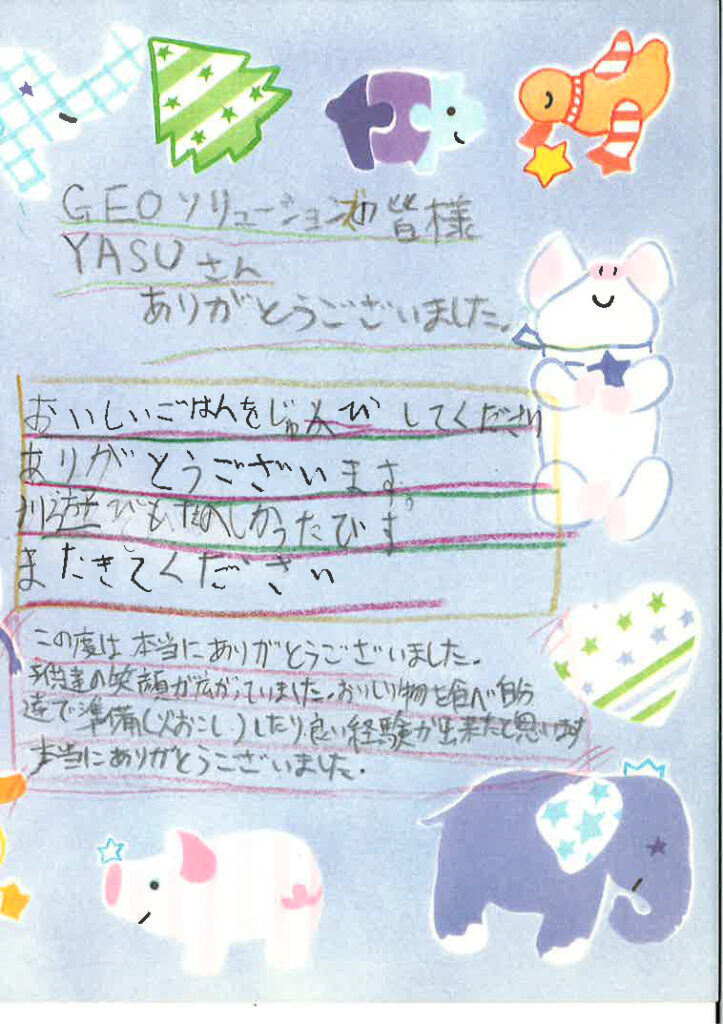 GEOソリューションズの皆様
YASUさん
ありがとうございました。
おいしいごはんをじゅんびしてくださり
ありがとうございます。
川遊びもたのしかったです
またきてください
この度は本当にありがとうございました。
子供達の笑顔が広がっていました。おいしい物を食べ自分
達で準備(火おこし)したり良い経験が出来たと思います
本当にありがとうございました.